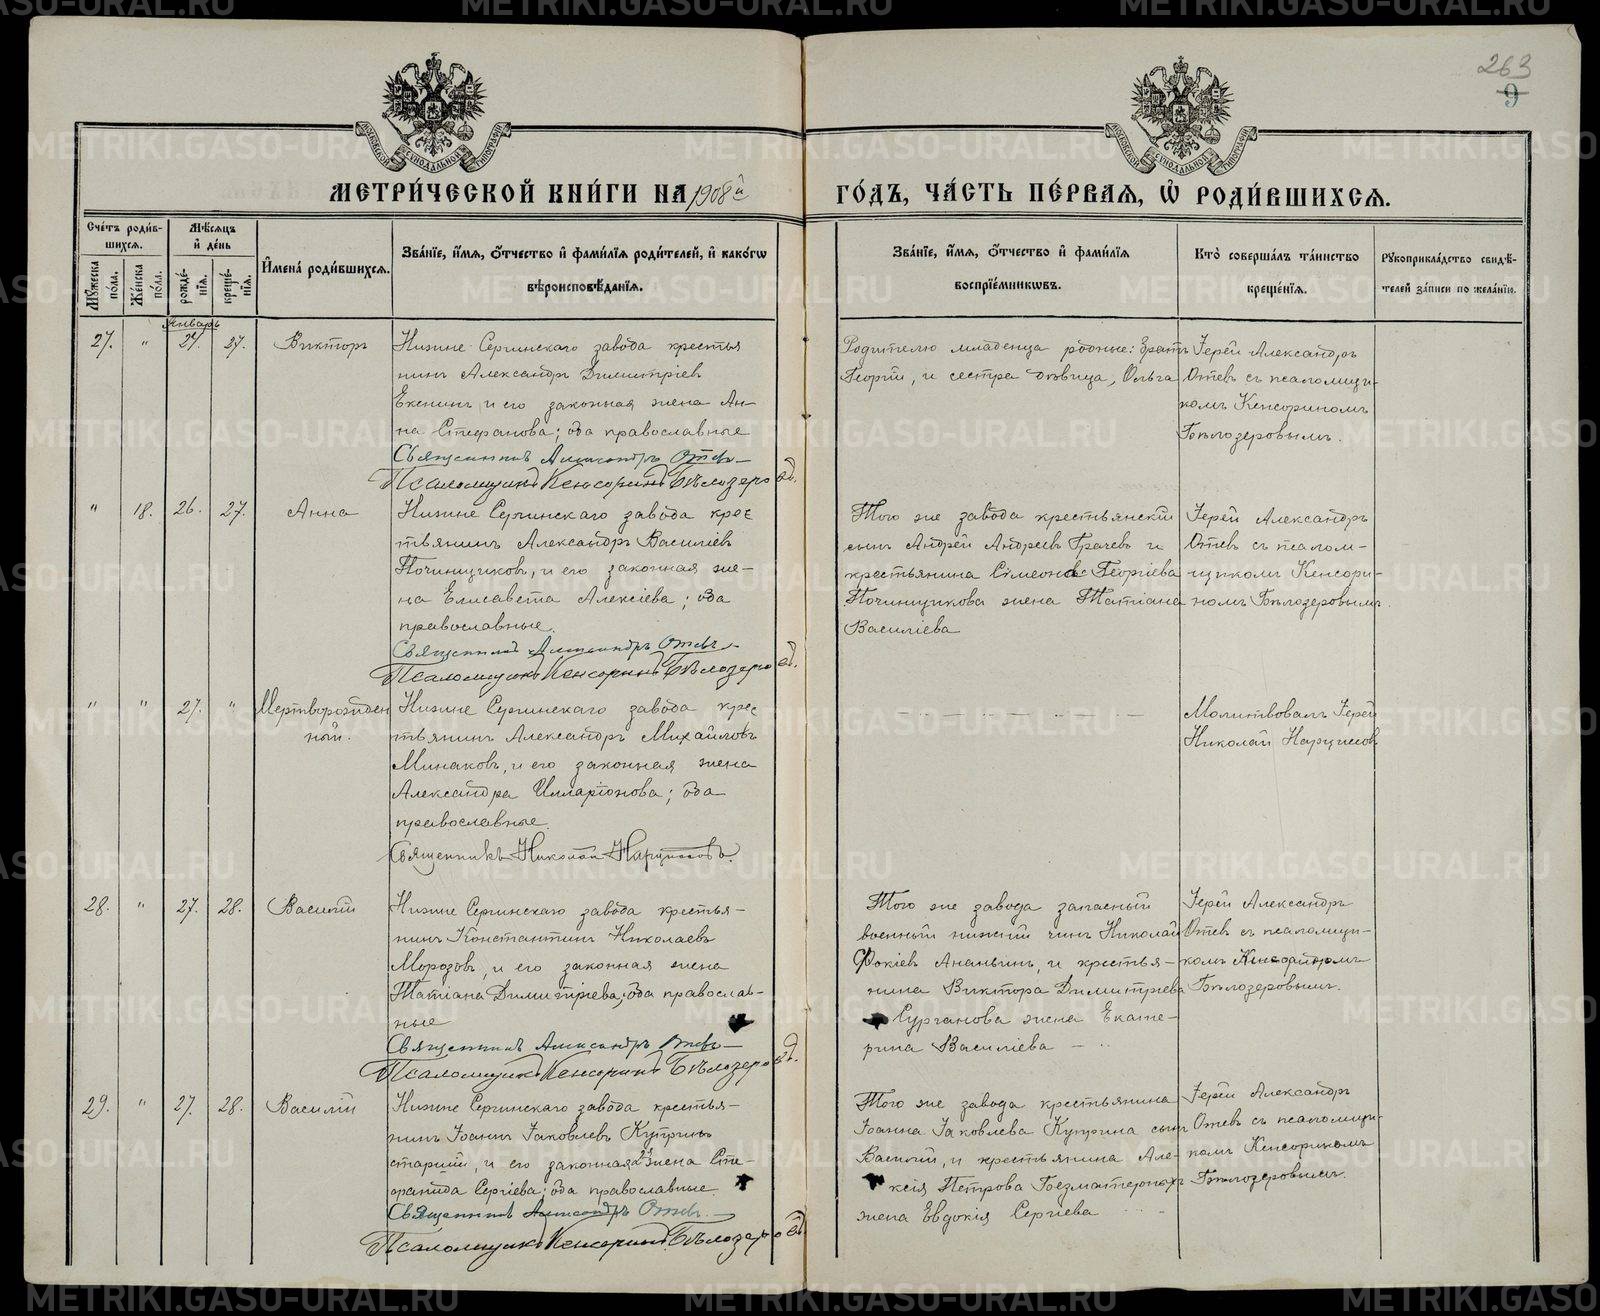 263
9
МЕТРИ́ЧЕСКОЙ КНИ́ГИ НА 1908й ГО́ДЪ, ЧА́СТЬ ПЕ́РВАЯ, Ѡ҆ РОДИ́ВШИХСЯ.
Сче́тъ роди́в-
шихся.
Мѣ́сяцъ
и҆ де́нь
Му́жеска
по́ла.
Же́нска
по́ла.
рожде́-
нїя.
креще́-
нїя.
И҆мена̀ роди́вшихся.
Зва́нїе, и҆́мя, ѻ҆́тчество и҆ фами́лїя роди́телей, и҆ како́гѡ
вѣроисповѣ́данїя.
Зва́нїе, и҆́мя, ѻ҆́тчество и҆ фами́лїя
воспрїе́мникѡвъ.
Кто̀ соверша́лъ та́инство
креще́нїя.
Рꙋкоприкла́дство свидѣ́-
телей за́писи по жела́нїю.
Январь
27. " 27. 27.
Викторъ
Нижне Сергинскаго завода крестья
нинъ Александръ Димитріев
Екенинъ, и его законная жена Ан-
на Стефанова; оба православные
Священникъ Александръ Отевъ
Псаломщикъ Кенсоринъ Бѣлозеровъ.
Родителю младенца родные: братъ
Георгій, и сестра дѣвица, Ольга
Іерей Александръ
Отевъ съ псаломщи-
комъ Кенсориномъ
Бѣлозеровымъ.
" 18. 26. 27.
Анна
Нижне Сергинскаго завода крес
тьянинъ Александръ Василіевъ
Починщиковъ, и его законная же-
на Елисавета Алексіева; оба
православные.
Священникъ Александръ Отевъ
Псаломщикъ Кенсоринъ Бѣлозеровъ.
Того же завода крестьянскій
сынъ Андрей Андреевъ Грачевъ и
крестьянина Симеона Георгіева
Починщикова жена Татіана
Василіева
Іерей Александръ
Отевъ съ псалом-
щикомъ Кенсори-
номъ Бѣлозеровымъ.
" " 27. "
Мертворожден
ный.
Нижне Сергинскаго завода крес
тьянинъ Александръ Михайловъ
Минаковъ, и его законная жена
Александра Илларіонова; оба
православные.
Священникъ Николай Нарциссовъ.
Молитвовалъ Іерей
Николай Нарциссовъ
28. " 27. 28.
Василій
Нижне Сергинскаго завода крестья-
нинъ Константинъ Николаевъ
Морозовъ, и его законная жена
Татіана Димитріева; оба православ-
ные
Священникъ Александръ Отевъ
Псаломщикъ Кенсоринъ Бѣлозеровъ.
Того же завода запасный
военный нижній чинъ Николай
Фокіевъ Ананьинъ, и крестья-
нина Виктора Димитріева
Сурганова жена Екате-
рина Василіева
Іерей Александръ
Отевъ съ псаломщи-
комъ Кенсориномъ
Бѣлозеровымъ.
29. " 27. 28.
Василій
Нижне Сергинскаго завода крестья-
нинъ Іоаннъ Іаковлевъ Купринъ
старшій, и его законная 2я жена Сте-
фанида Сергіева; оба православные.
Священникъ Александръ Отевъ
Псаломщикъ Кенсоринъ Бѣлозеровъ
Того же завода крестьянина
Іоанна Іаковлева Куприна сынъ
Василій, и крестьянина Але-
ксія Петрова Безматерныхъ
жена Евдокія Сергіева
Іерей Александръ
Отевъ съ псаломщи-
комъ Кенсориномъ
Бѣлозеровымъ.
METRIKI.GASO-URAL.RU